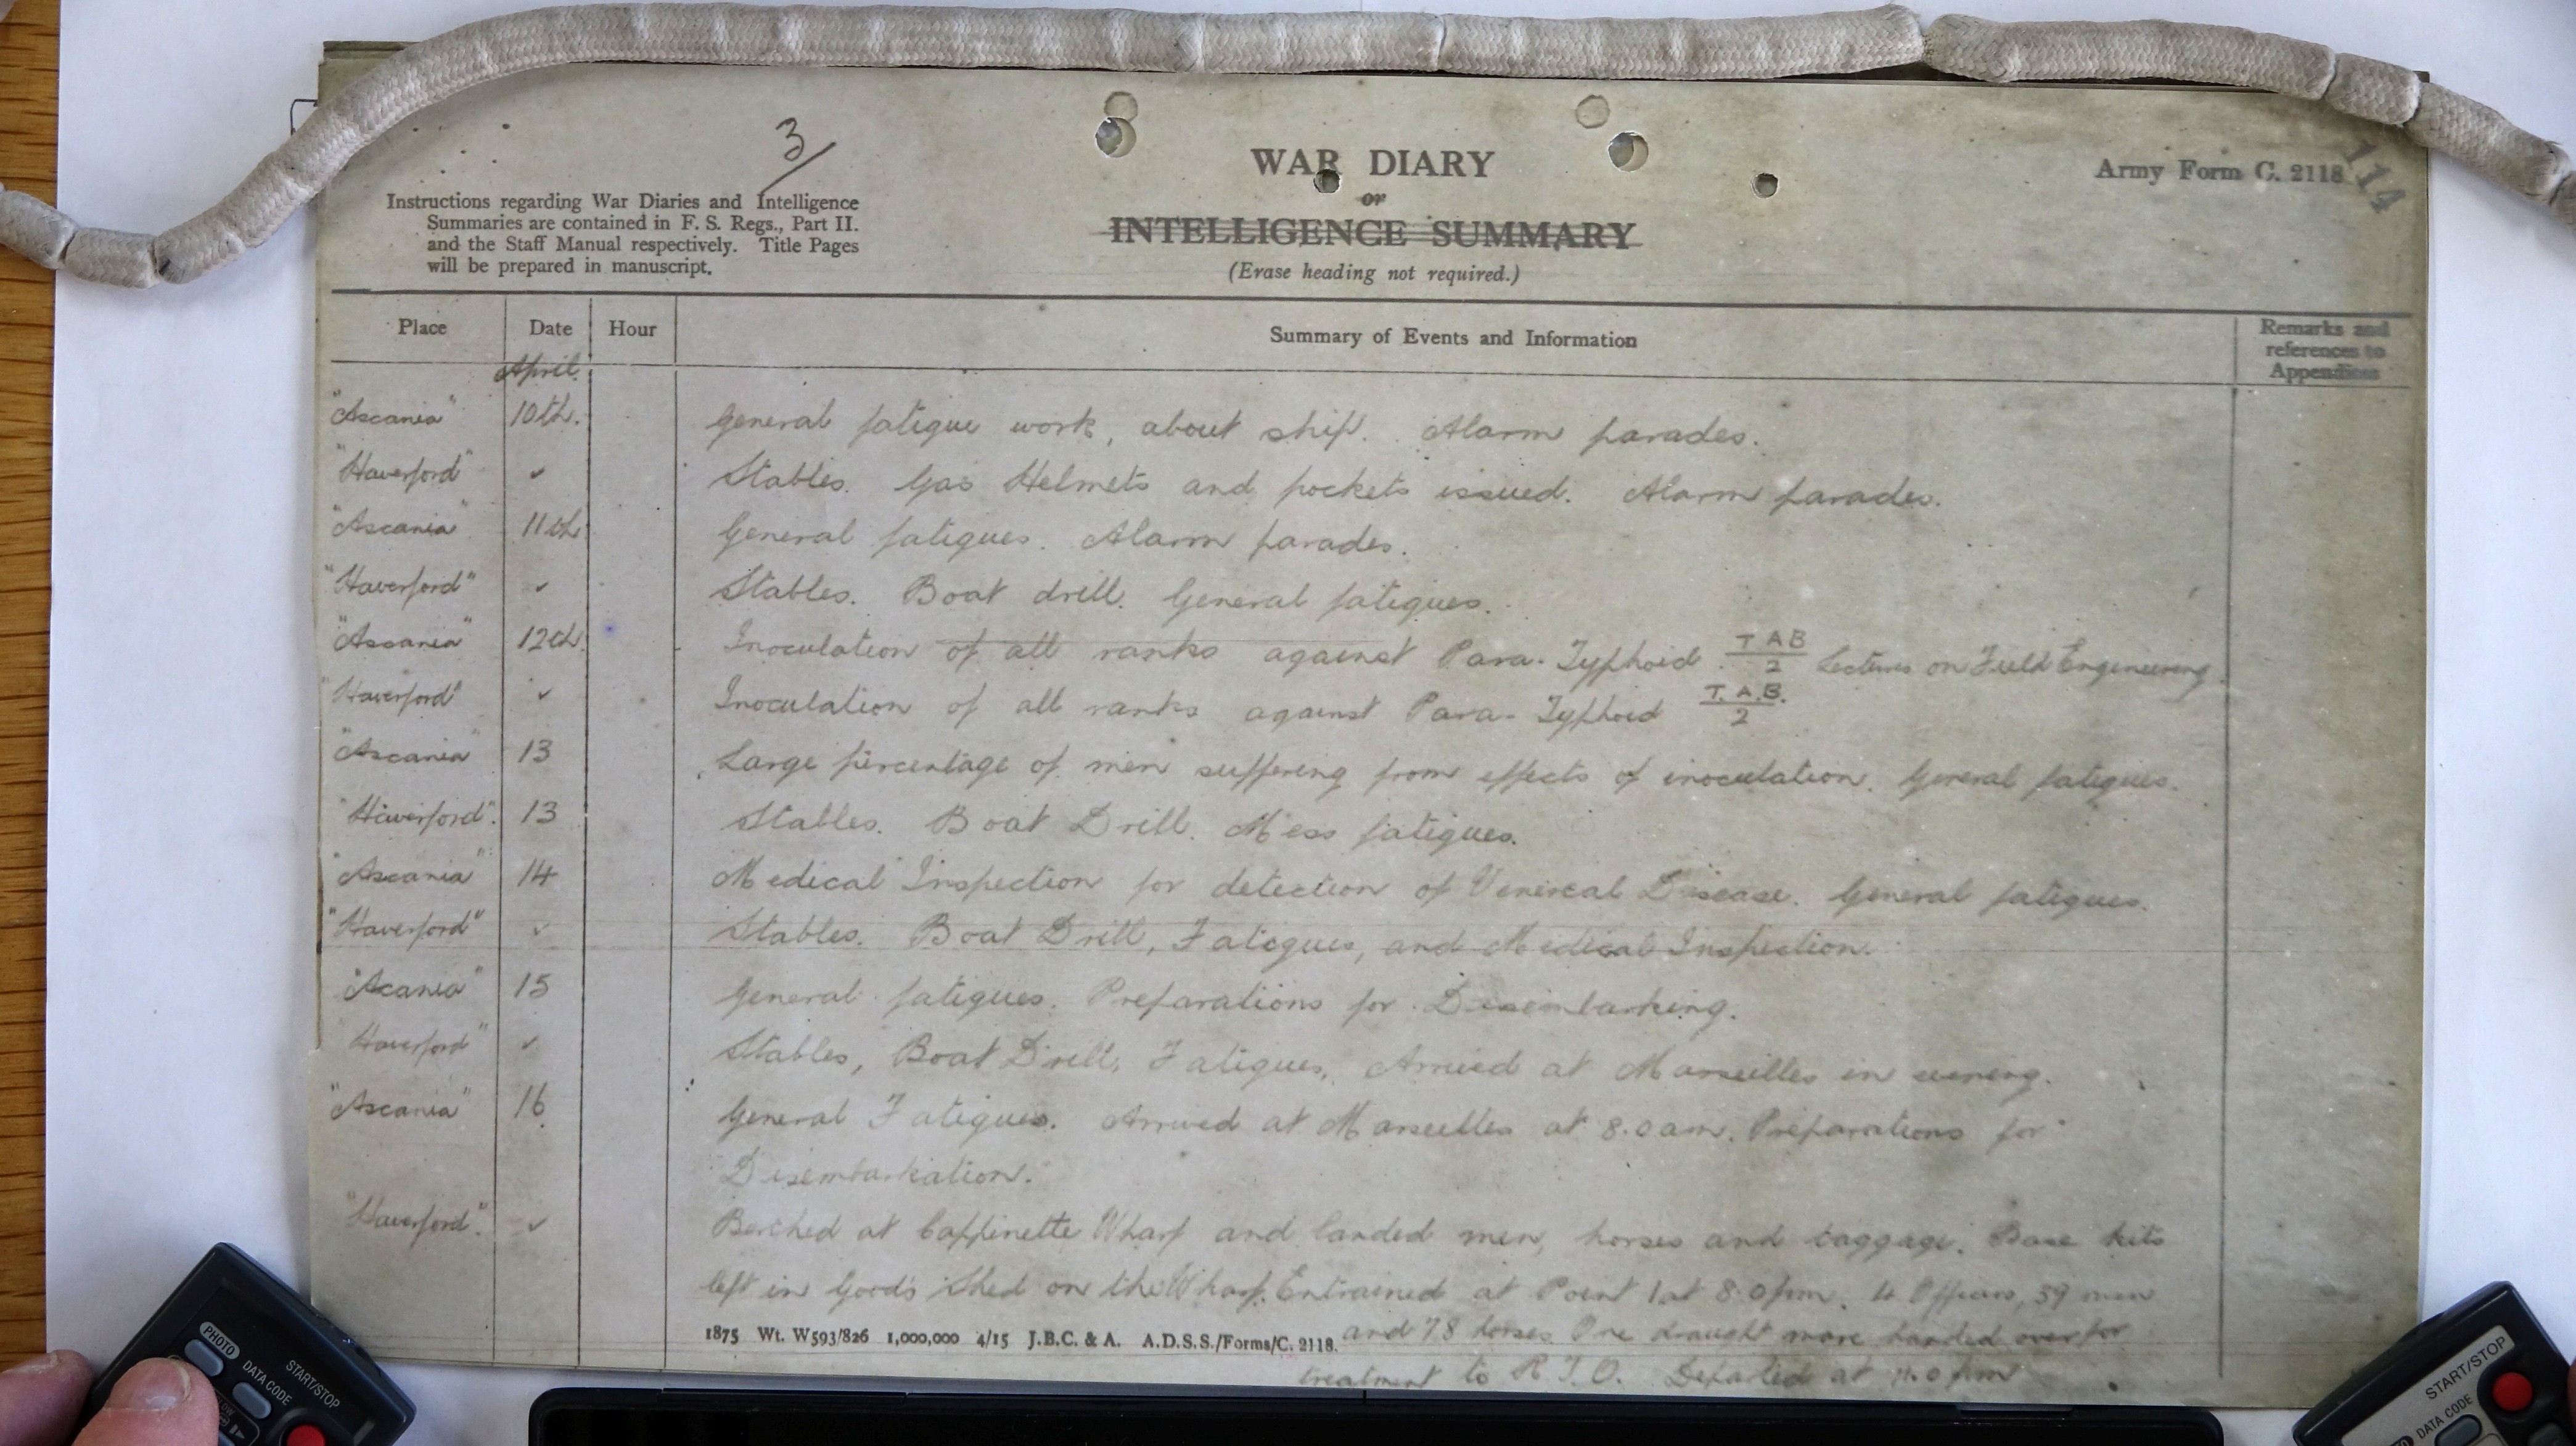 3/
WAR DIARY
or
INTELLIGENCE SUMMARY
(Erase heading not required.)
Army Form C. 2118
114
Instructions regarding War Diaries and Intelligence
Summaries are contained in F. S. Regs., Part II.
and the Staff Manual respectively. Title Pages
will be prepared in manuscript.
Place Date Hour Summary of Events and Information Remarks and
references to
Appendices
April.
"Ascania" 10th. General fatigue work, about ship. Alarm parades.
"Haverford" " Stables. Gas Helmets and pockets issued. Alarm parades.
"Ascania" 11th General fatigues. Alarm parades.
"Haverford" " Stables. Boat drill. General fatigues.
"Ascania" 12th. Inoculation of all ranks against Para-Typhoid. TAB/2 Lectures on Field Engineering.
"Haverford" " Inoculation of all ranks against Para-Typhoid T.A.B./2
"Ascania" 13 Large percentage of men suffering from effects of inoculation. General fatigues.
"Haverford". 13 Stables. Boat Drill. Mess fatigues.
"Ascania" 14 Medical Inspection for detection of Venereal Disease. General fatigues.
"Haverford" " Stables. Boat Drill, Fatigues, and Medical Inspection.
"Acania" 15 General fatigues. Preparations for Disembarking.
"Haverford" " Stables, Boat Drill, Fatigues, Arrived at Marseilles in evening.
"Ascania" 16 General Fatigues. Arrived at Marseilles at 8.0 am. Preparations for
Disembarkation.
"Haverford". " Berthed at Caffinette Wharf and landed men, horses and baggage. Base kits
left in Goods Shed on the Wharf. Entrained at Point 1 at 8.0 pm. 4 Officers, 39 men
1875 Wt. W593/826 1,000,000 4/15 J.B.C. & A. A.D.S.S./Forms/C. 2118. and 78 horses. One draught mare handed over for
treatment to R.T.O. Departed at 11.0 pm
PHOTO
DATA CODE
START/STOP
START/STOP
DATA CODE